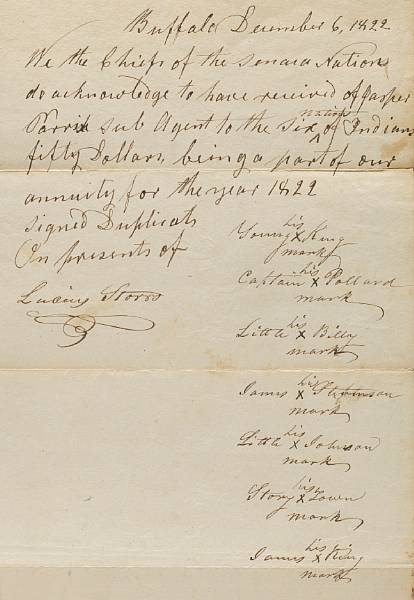 Buffalo December 6, 1822
We the Chiefs of the Senaca Nations
do acknowledge to have received of Jasper
Parrish sub Agent to the Six nations of Indians
fifty Dollars, being a part of our
annuity for the year 1822
signed Duplicats
On presents of
Lucius Storrs
Young his x King
mark
Captain his x Pollard
mark
Little his x Billy
mark
James his x Stevenson
mark
Little his x Johnson
mark
his x
mark
James his x King
mark